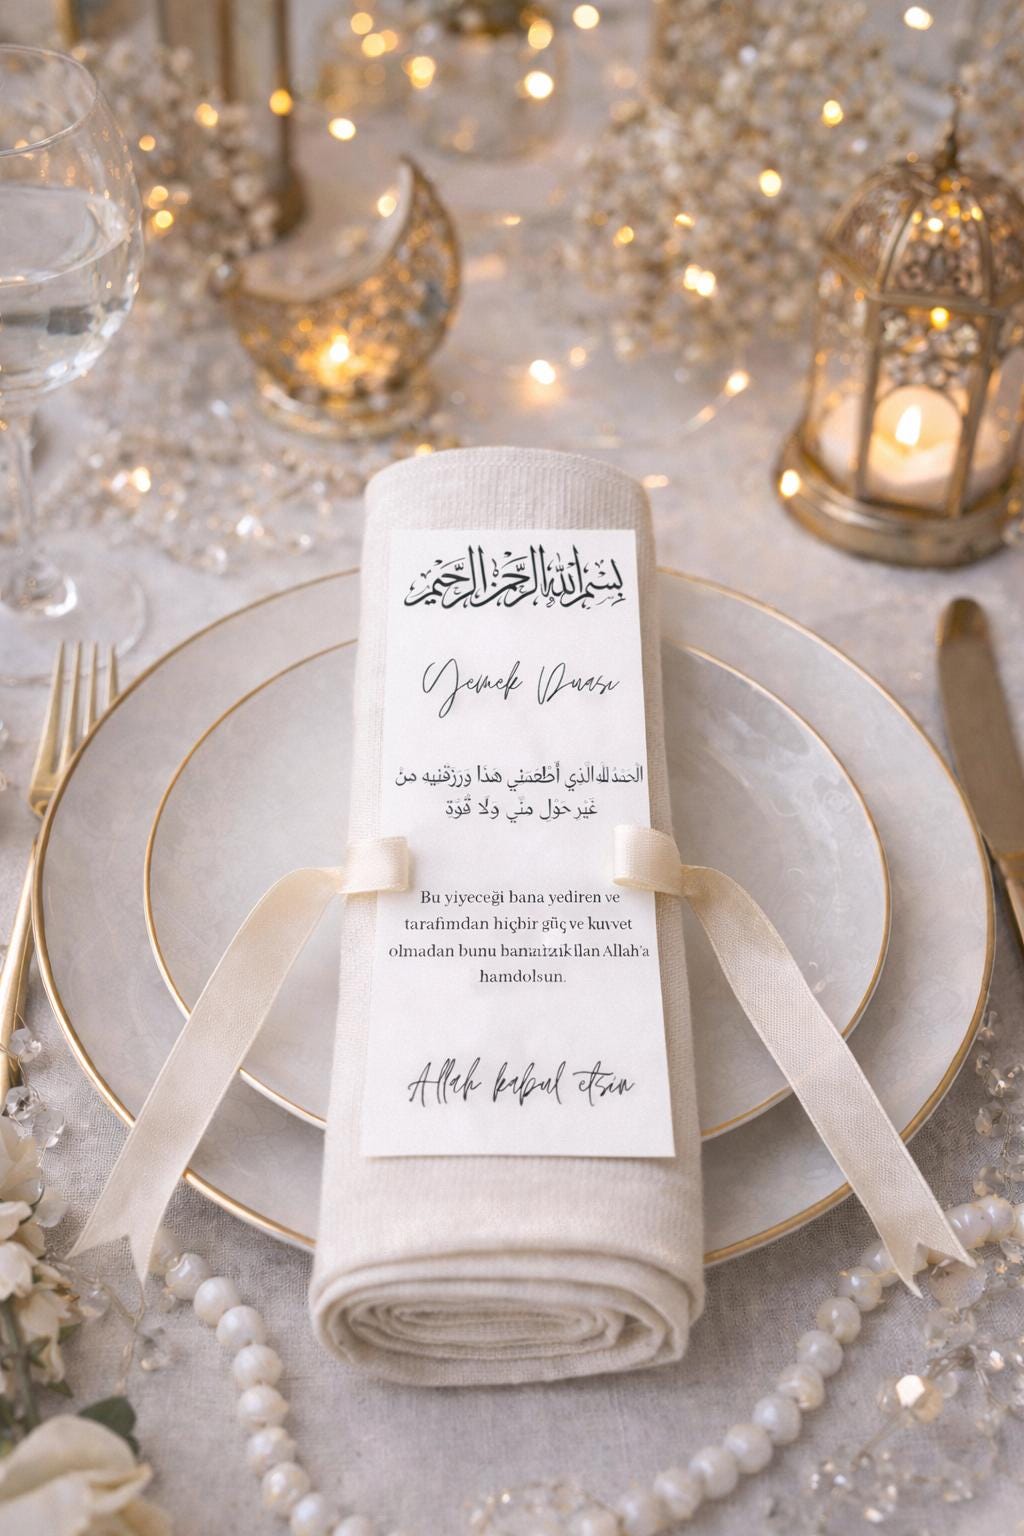 بِسْمِ اللهِ الرَّحْمٰنِ الرَّحِيْمِ
Yemek Duası
الْحَمْدُ لِلَّهِ الَّذِي أَطْعَمَنِي هَذَا وَرَزَقَنِيهِ مِنْ
غَيْرِ حَوْلٍ مِنِّي وَلَا قُوَّةٍ
Bu yiyeceği bana yediren ve
tarafımdan hiçbir güç ve kuvvet
olmadan bunu Allah'a
hamdolsun.
Allah kabul etsin